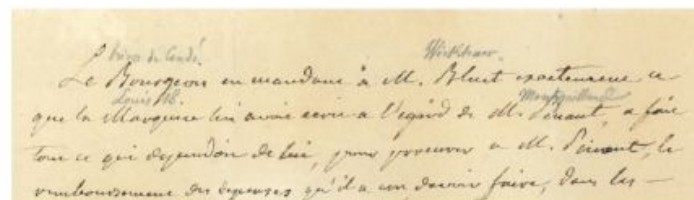 Prince de Condé. Wickham.
Le Bourgeois en mandant à M. Bluet exactement ce
Louis 18. Montgaillard
que la Marquise lui avoit écrit à l'égard de M. Pinaut, a fait
tout ce qui dependoit de lui, pour procurer a M. Pinaut, le
remboursement des depenses qu'il a cru devoir faire, dans les —